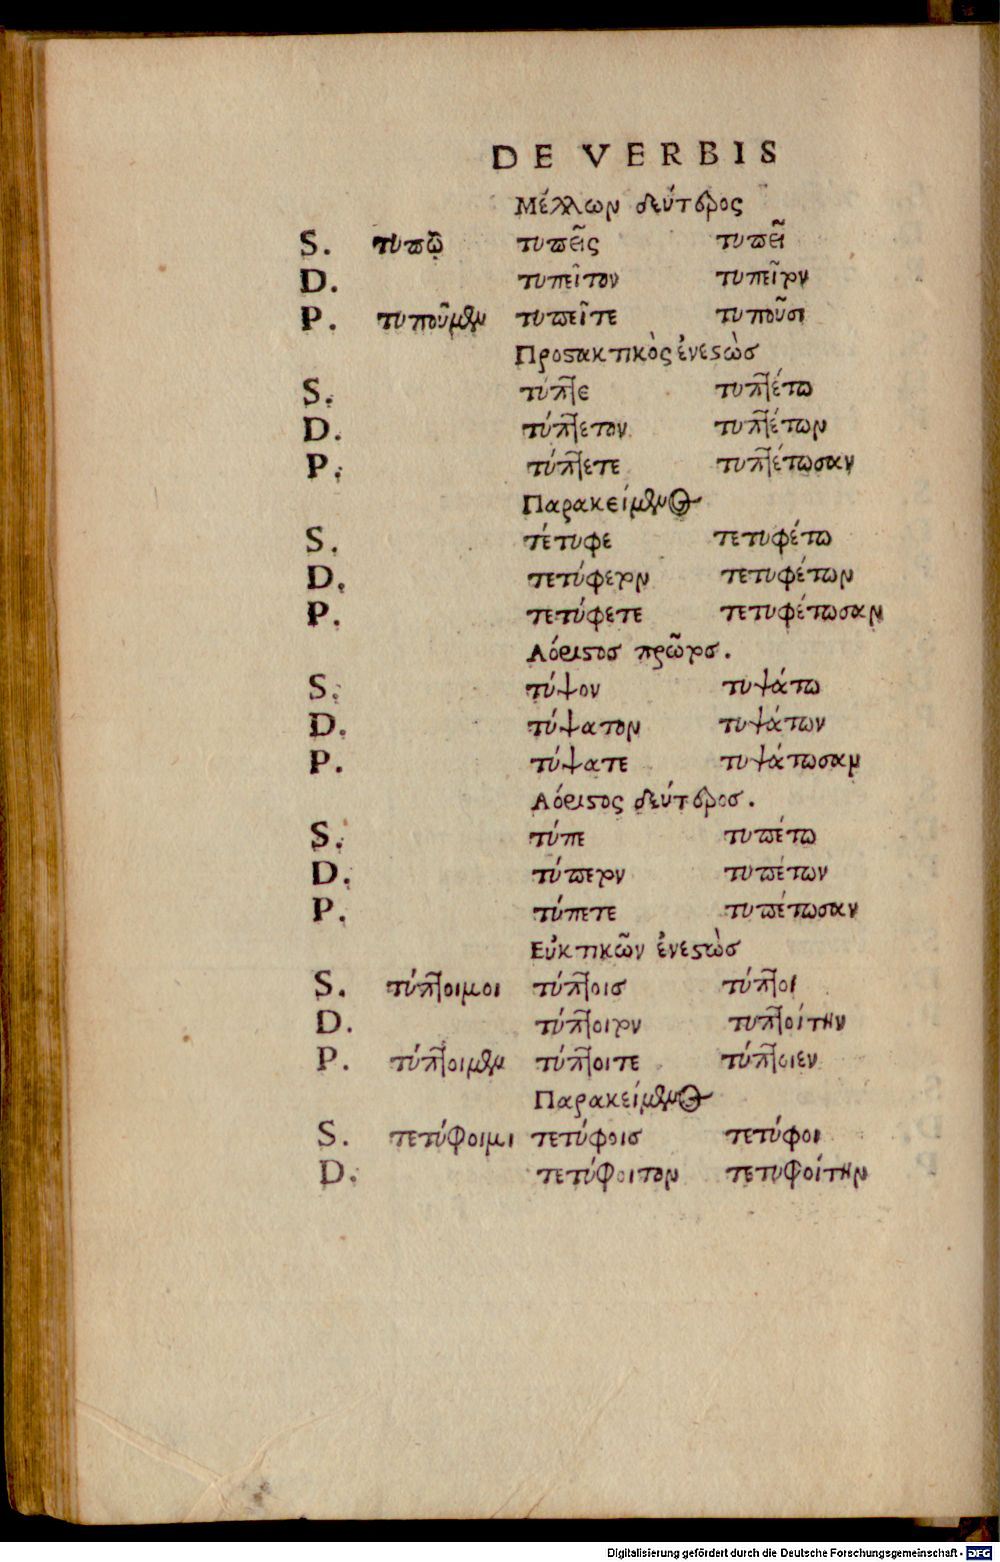 DE VERBIS
Μέλλων δεύτερος
S. τυπῶ τυπεῖς τυπεῖ
D. τυπεῖτον τυπεῖτον
P. τυποῦμεν τυπεῖτε τυποῦσι
Προςακτικὸς ἐνεςὼσ
S. τύπτε τυπτέτω
D. τύπτετον τυπτέτων
P. τύπτετε τυπτέτωσαν
Παρακείμενος
S. τέτυφε τετυφέτω
D. τετύφετον τετυφέτων
P. τετύφετε τετυφέτωσαν
Αόριςοσ πρῶτοσ.
S. τύψον τυψάτω
D. τύψατον τυψάτων
P. τύψατε τυψάτωσαν
Αόριςος δεύτεροσ.
S. τύπε τυπέτω
D. τύπετον τυπέτων
P. τύπετε τυπέτωσαν
Εὐκτικῶν ἐνεςὼσ
S. τύπτοιμοι τύπτοισ τύπτοι
D. τύπτοιτον τυπτοίτην
P. τύπτοιμεν τύπτοιτε τύπτοιεν
Παρακείμενος
S. τετύφοιμι τετύφοισ τετύφοι
D. τετύφοιτον τετυφοίτην
Digitalisierung gefördert durch die Deutsche Forschungsgemeinschaft - DFG